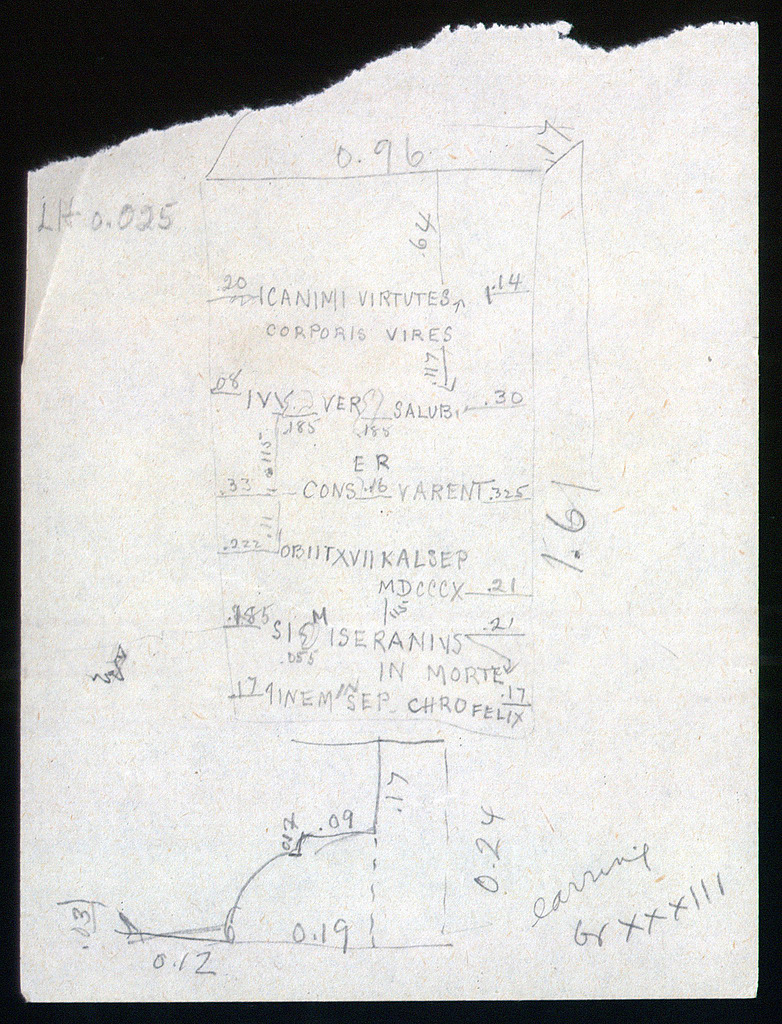 0.96
.17
LH 0.025
.64
.20 ICANIMI VIRTUTES .14
CORPORIS VIRES
.117
.08 IVV VER SALUB .30
.185 .185
.115
E R
.33 CONS .16 VARENT .325
.11
.222 OBIITXVIIKALSEP
1.61
MDCCCX .21
.115
.185 SI M ISERANIVS .21
.055
IN MORTE
.17 INEM IN SEP CHRO FELIX .17
.17
.09
.017
0.24
.031
0.19
0.12
earring
Gr XXXIII